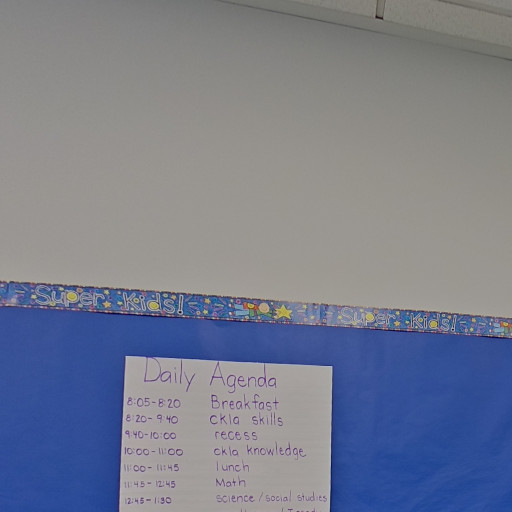 Super Kids! Super Kids!
Daily Agenda
8:05-8:20 Breakfast
8:20-9:40 ckla skills
9:40-10:00 recess
10:00-11:00 ckla knowledge
11:00-11:45 lunch
11:45-12:45 Math
12:45-1:30 science/social studies